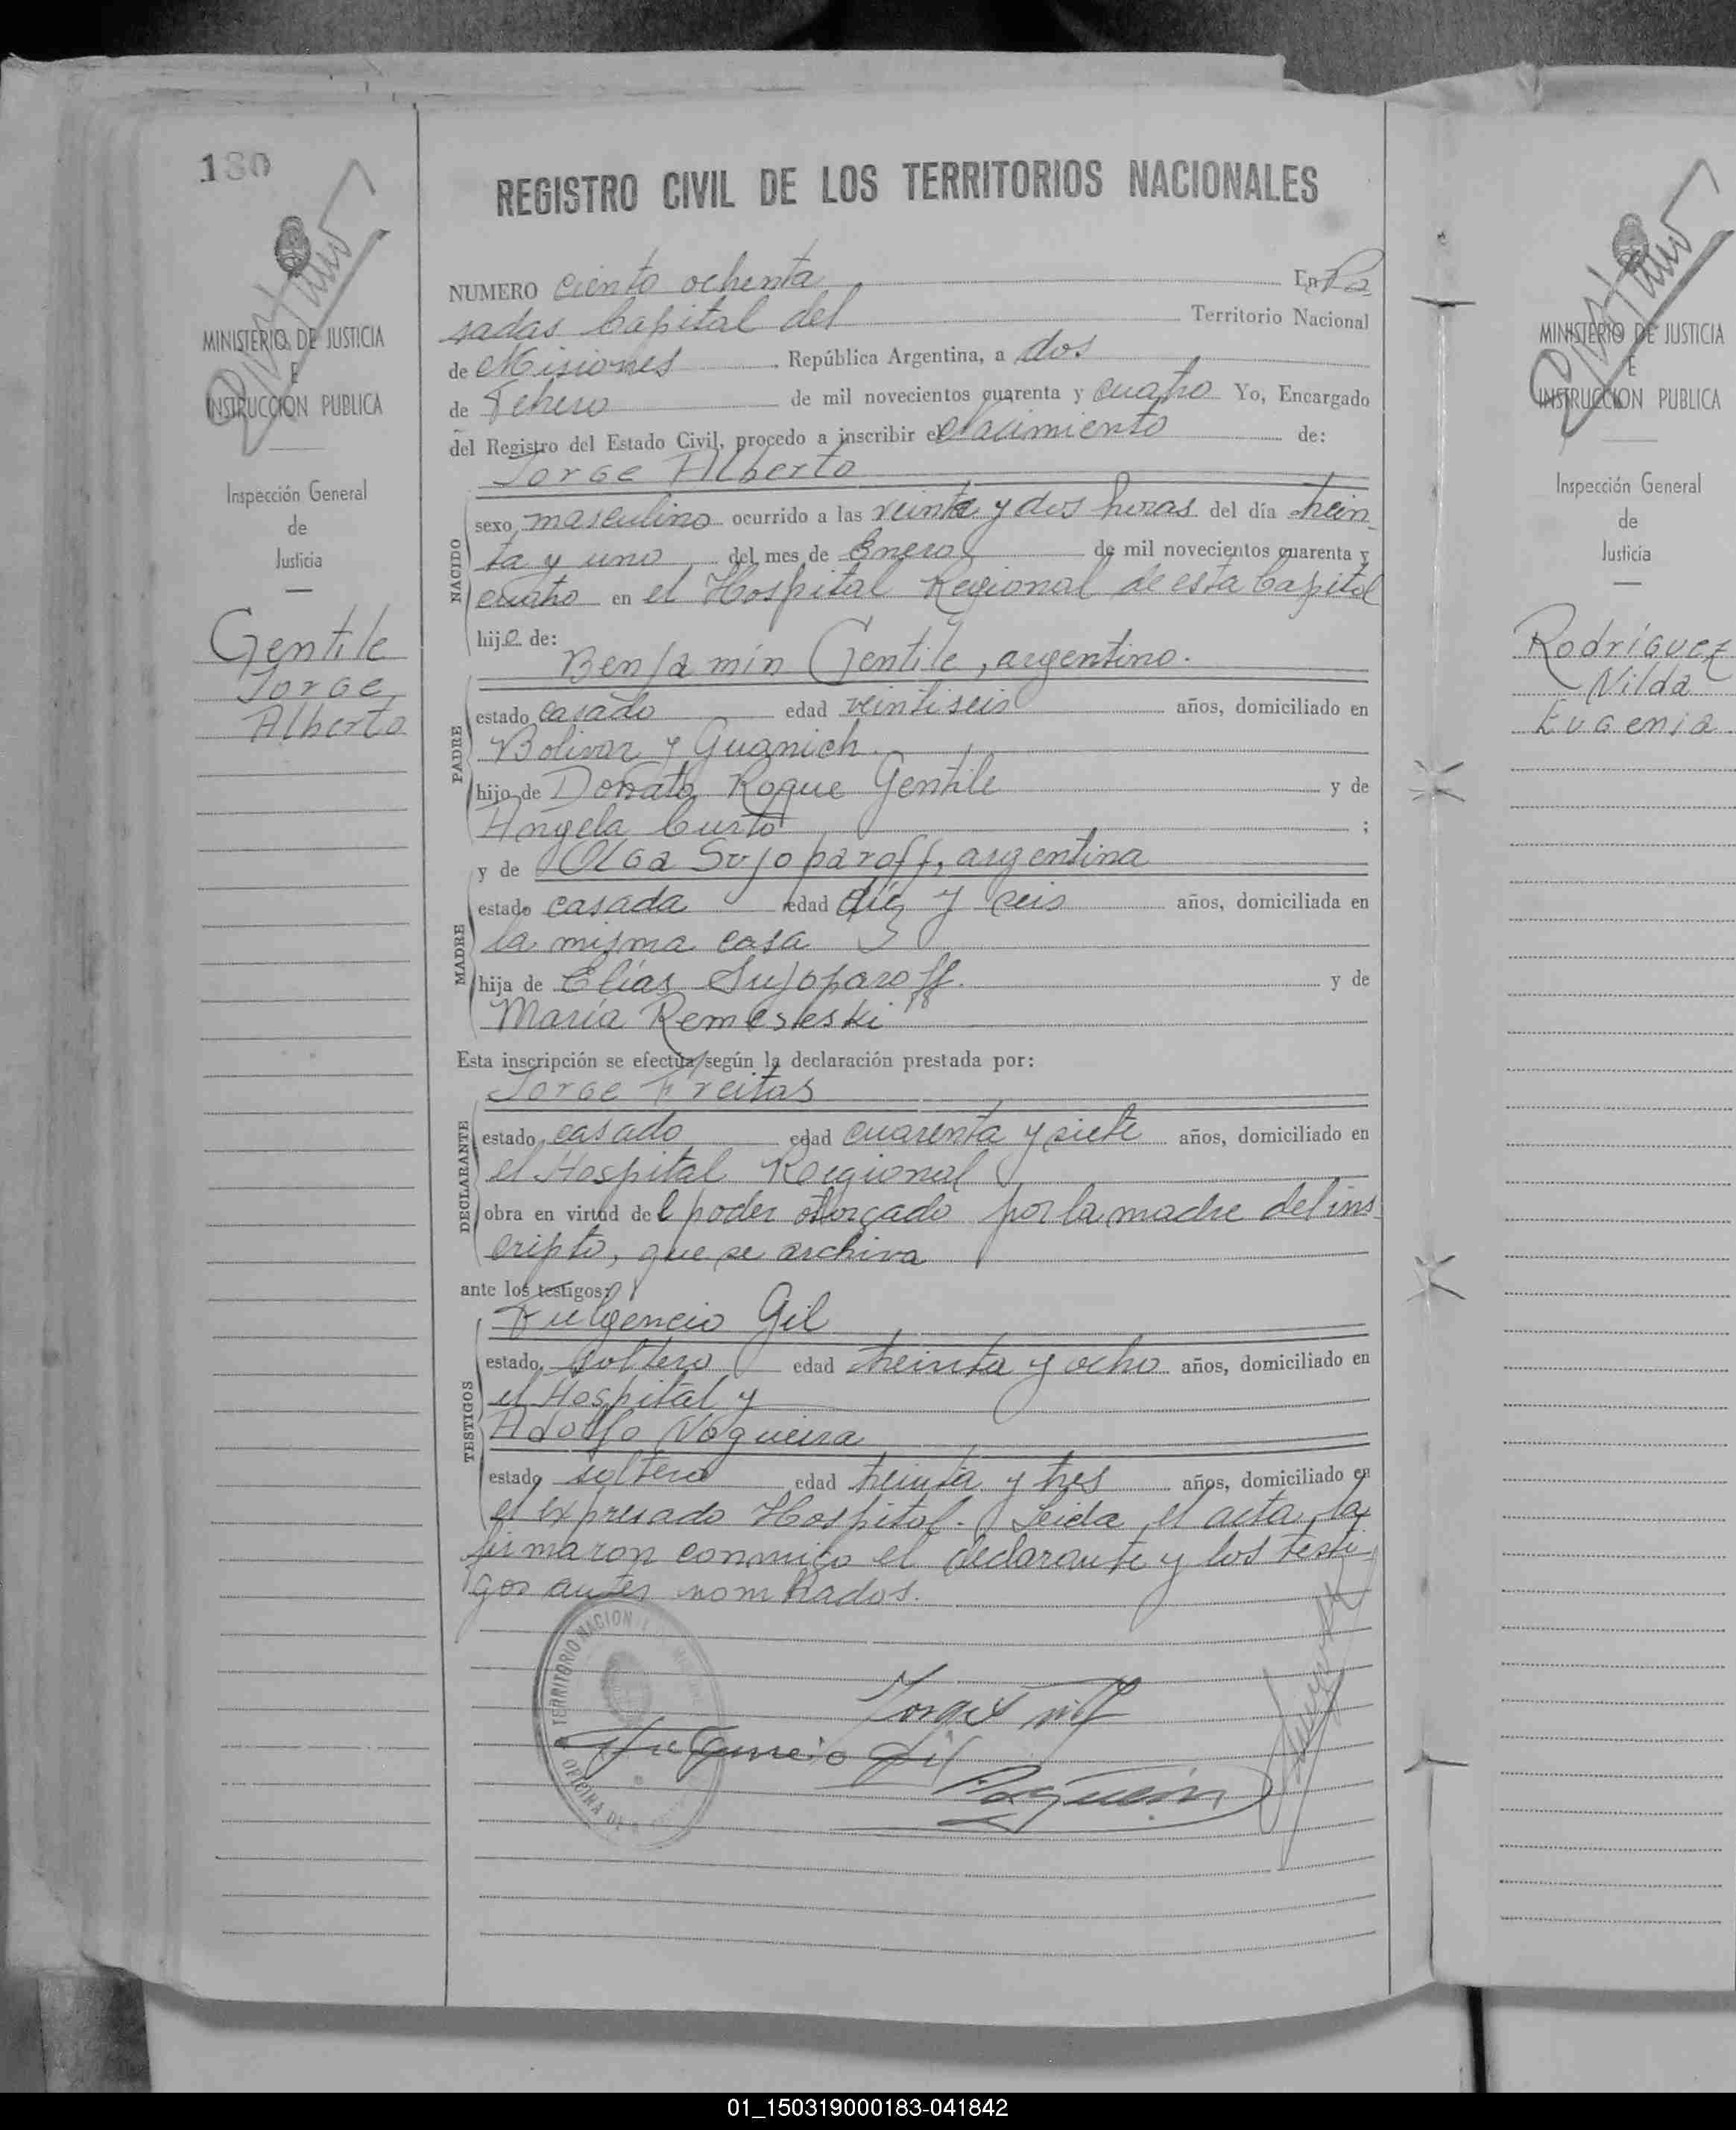 180
MINISTERIO DE JUSTICIA
E
INSTRUCCION PUBLICA
Inspección General
de
Justicia
Gentile
Jorge
Alberto
REGISTRO CIVIL DE LOS TERRITORIOS NACIONALES
NUMERO ciento ochenta En Po
sadas Capital del Territorio Nacional
de Misiones, República Argentina, a dos
de Febrero de mil novecientos cuarenta y cuatro Yo, Encargado
del Registro del Estado Civil, procedo a inscribir el Nacimiento de:
Jorge Alberto
NACIDO
sexo masculino ocurrido a las veinte y dos horas del día trein
ta y uno del mes de Enero de mil novecientos cuarenta y
cuatro en el Hospital Regional de esta Capital
hijo de:
PADRE
Benjamín Gentile, argentino.
estado casado edad veintiseis años, domiciliado en
Bolivar y Guanich.
hijo de Donato Roque Gentile y de
Angela Curto ;
MADRE
y de Olga Sujoparoff, argentina
estado casada edad diez y seis años, domiciliada en
la misma casa
hija de Elías Sujoparoff. y de
María Remesleski
Esta inscripción se efectúa según la declaración prestada por:
DECLARANTE
Jorge Freitas
estado casado edad cuarenta y siete años, domiciliado en
el Hospital Regional
obra en virtud del poder otorgado por la madre del ins
cripto, que se archiva
ante los testigos:
TESTIGOS
Fulgencio Gil
estado soltero edad treinta y ocho años, domiciliado en
el Hospital y
Adolfo Nogueira
estado soltero edad treinta y tres años, domiciliado en
el expresado Hospital. Leida el acta, la
firmaron conmigo el declarante y los testi
gos antes nombrados.
TERRITORIO NACION
OFICINA DE
Fulgencio Gil
Nogueira
MINISTERIO DE JUSTICIA
E
INSTRUCCION PUBLICA
Inspección General
de
Justicia
Rodríguez
Nilda
Eugenia
01_150319000183-041842